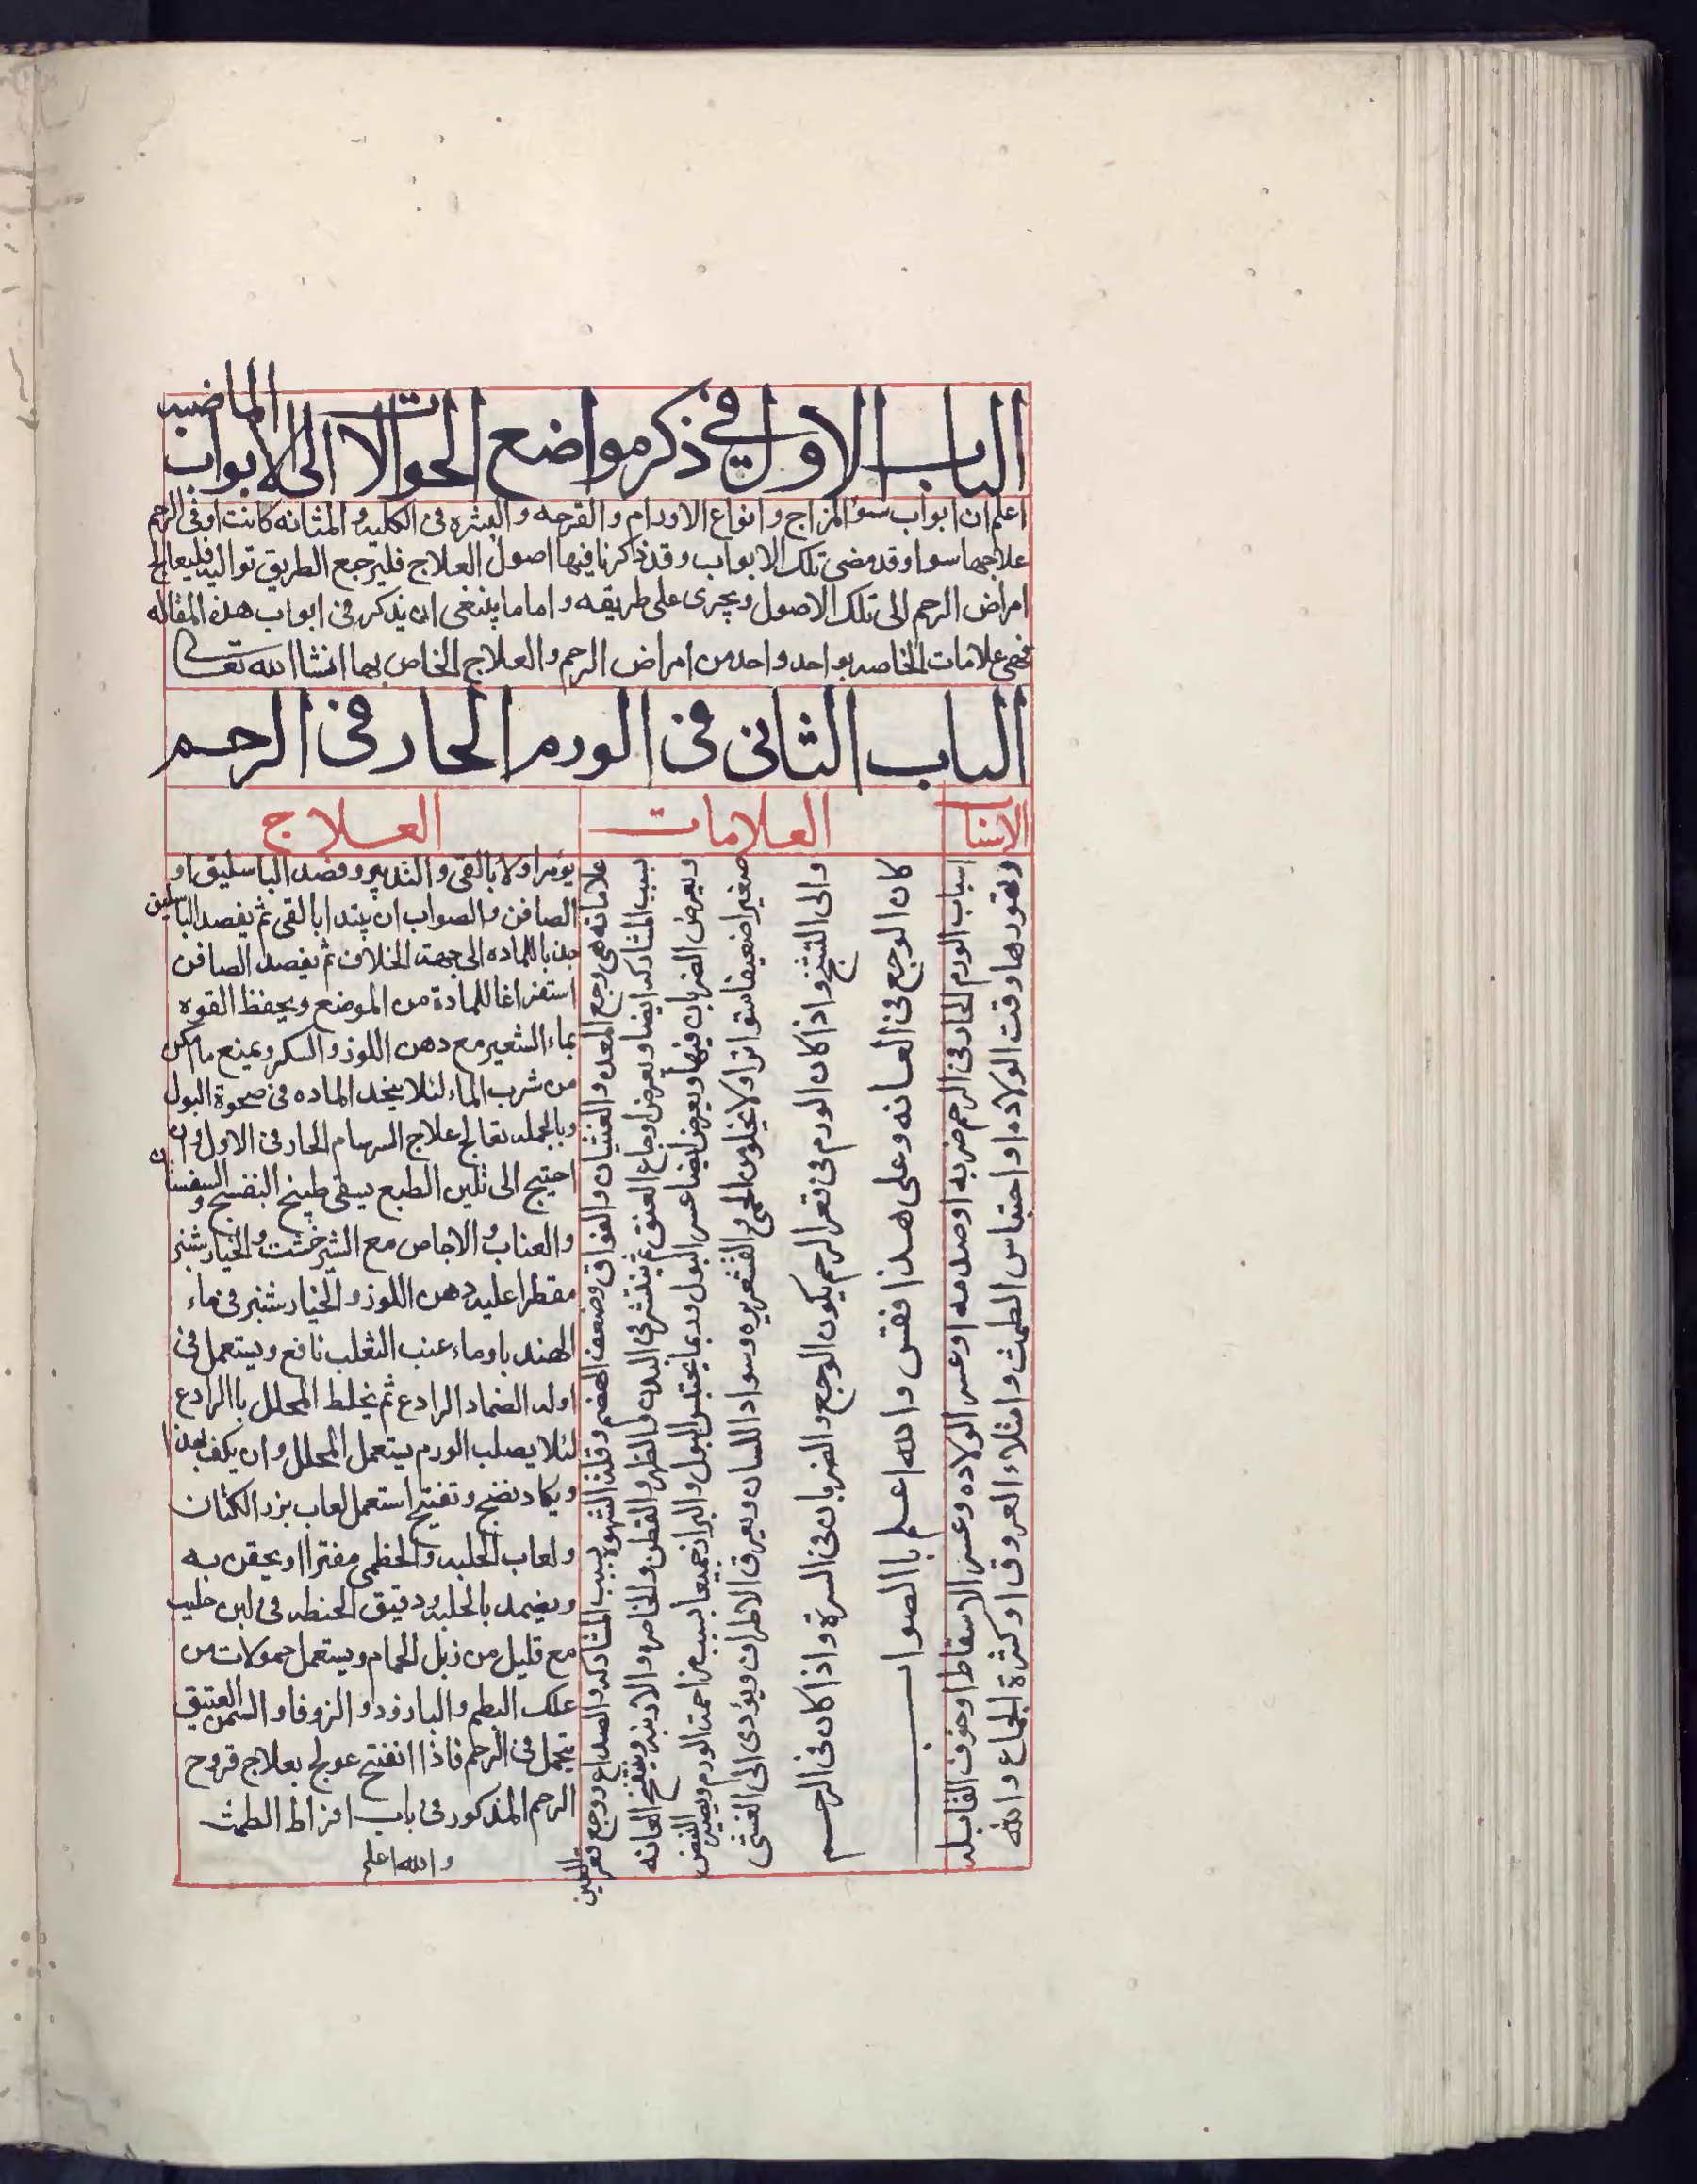 الباب الاول في ذكر مواضع الحوالات الى الابواب الماضيه
اعلم ان ابواب سوٴ المزاج وانواع الاورام والقرحه والبثره فى الكليه والمثانه كانت او فى الرحم
علاجها سوا وقد مضى تلك الابواب وقد ذاكرنا فيها اصول العلاج فليرجع الطريق توالیه فليعالج
امراض الرحم الى تلك الاصول ويجرى على طريقه واما ما ينبغى ان يذكر فى ابواب هذه المقاله
فهى علامات الخاصه بواحد واحد من امراض الرحم والعلاج الخاص بها انشا الله تعالى
الباب الثانى فى الورم الحار فى الرحم
الاسباب
العلامات
العلاج
اسباب الورم الحار فى الرحم ضربه او صدمه او عسر الولاده وعسر الاسقاط او خرف القابله
وقت الولاده او احتباس الطمث وامتلاء العروق او كثرة الجماع والله
علاماته هى وجع المعده والغثيان والفواق وضعف الهضم وقلة الشهوة بسبب المشاركه والصداع ووجع قعر العين
بسبب المشاركه ايضا ويعرض اوجاع العنق ثم ينتشر فى البدن والظهر والقطن والخاصره والاربيه وينتفخ العانه
ويعرض الضربان فيها ويعرض ايضا عسر البول وربما يحتبس البول والبراز جميعا بسبب مزاحمة الورم ويصير النبض
صغيرا ضعيفا متواترا ولا يخلو من الحمى والقشعريره وسواد اللسان ويعرق الاطراف ويؤدى الى الغشى
والى التشنج واذا كان الورم فى قعر الرحم يكون الوجع والضربان فى السرة واذا كان فى الرحم
كان الوجع فى العانه وعلى هذا فقس والله اعلم باالصواب
يؤمر اولا بالقى والتدبير وفصد الباسليق او
الصافن والصواب ان يبتدا بالقى ثم يفصد الباسليق
جذبا للماده الى جهة الخلاف ثم يفصد الصافن
استفراغا للمادة من الموضع ويحفظ القوه
بماء الشعير مع دهن اللوز والسكر ويمنع ما امكن
من شرب الماء لئلا ينجذ الماده فى صحوة البول
وبالجمله تعالج علاج السرسام الحار فى الاول وان
احتيج الى تليين الطبع يسقى طبيخ البنفسج والسفستان
والعناب والاجاص مع الشيرخشت والخيارشنبر
مقطرا عليه دهن اللوز والخيارشنبر فى ماء
الهندبا وماء عنب الثعلب نافع ويستعمل فى
اوله الضماد الرادع ثم يخلط المحلل باالرادع
لئلا يصلب الورم يستعمل المحلل وان يكف بهذا
ويكاد نضج وتفتيح استعمل لعاب بزر الكتان
ولعاب الحلبه والخطمى مفترا او يحقن به
ويضمد بالحلبه ودقيق الحنطه فى لبن حليب
مع قليل من زبل الحمام ويستعمل حمولات من
علك البطم والبارزد والزوفا والسمن العتيق
تحمل فى الرحم فاذا انفتح عولج بعلاج قروح
الرحم المذكور فى باب افراط الطمث
والله اعلم